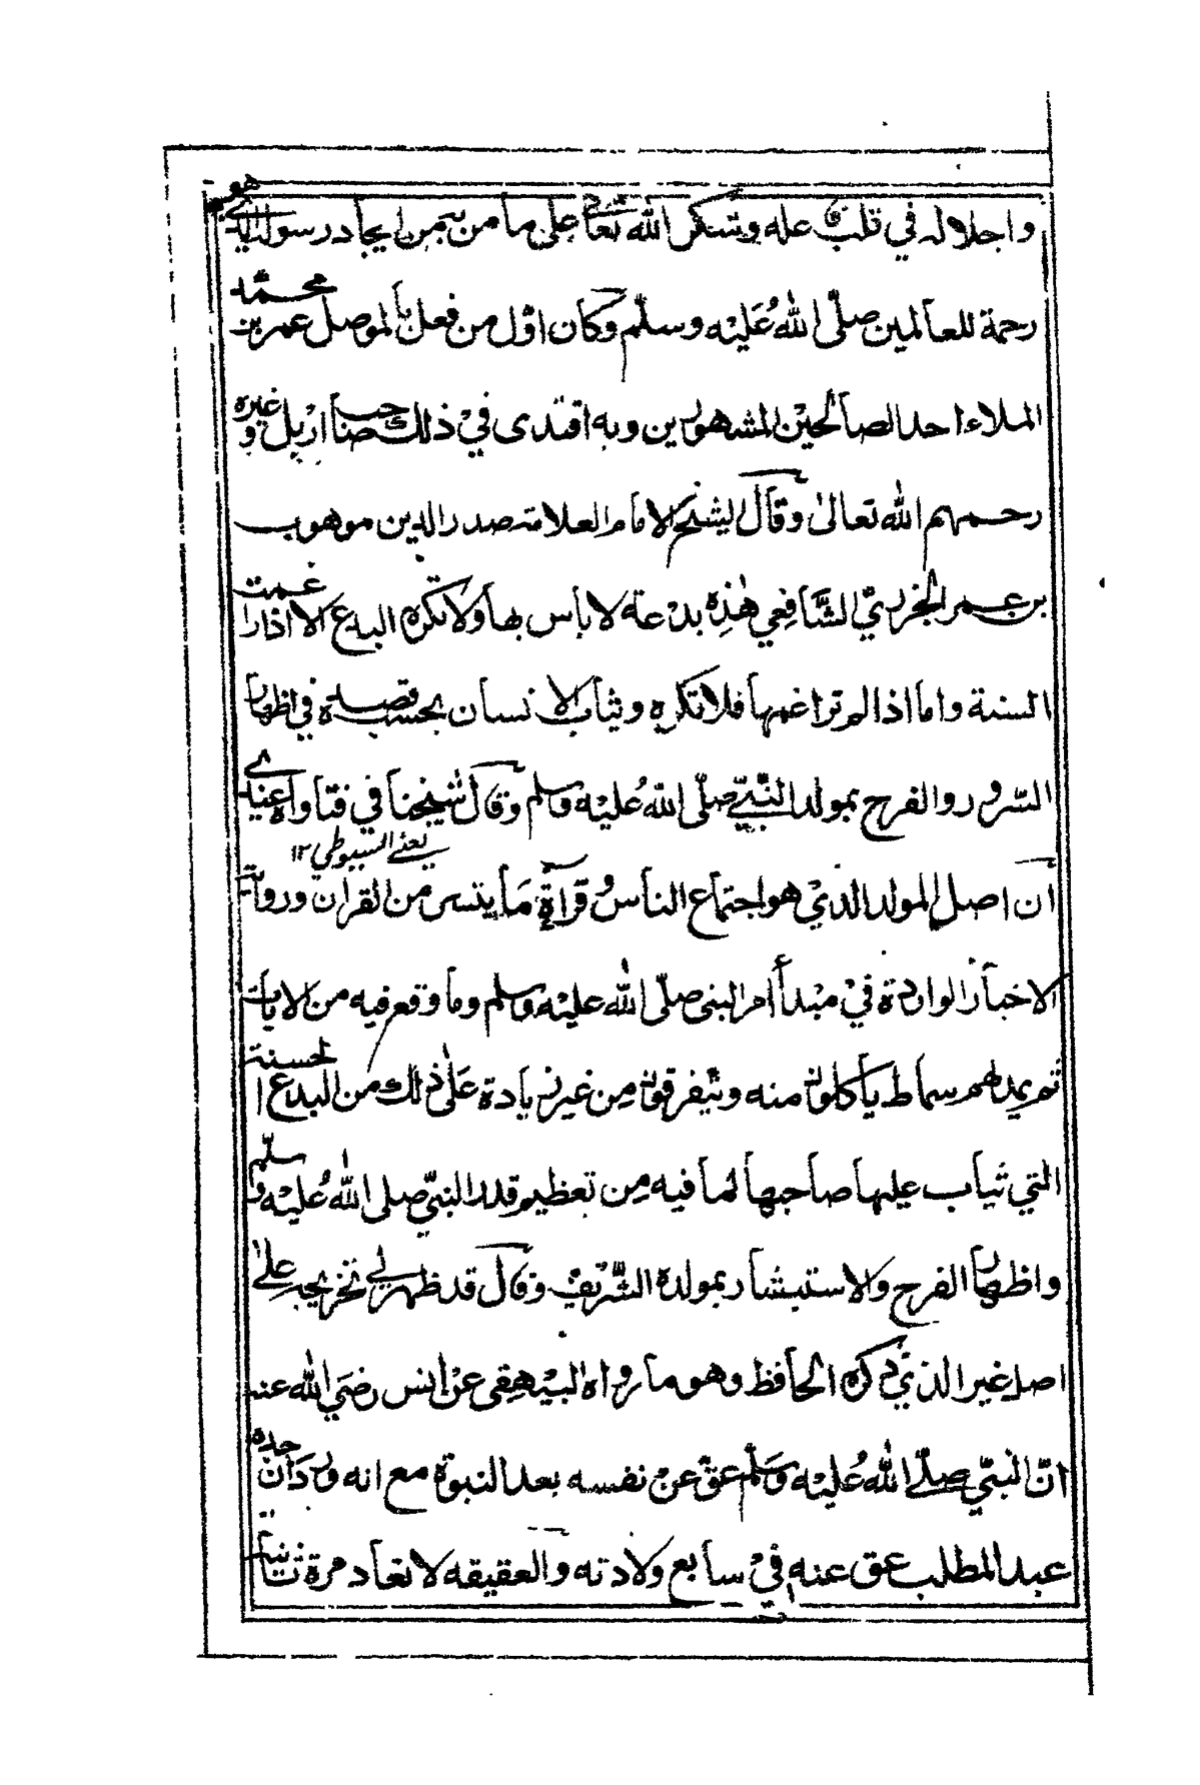 واجلاله في قلب فاعله وشكر الله تعالى على ما من به من ايجاد رسوله الذي هو
رحمة للعالمين صلّى الله عليه وسلّم وكان اوّل من فعل بالموصل عمر بن محمّد
الملاء احد الصالحين المشهورين وبه اقتدى في ذلك صاحب اربل وغيره
رحمهم الله تعالى وقال الشيخ الامام العلامة صدر الدين موهوب
بن عمر الجزري الشّافعي هٰذه بدعة لا بأس بها ولا تكره البدع الا اذا راغمت
السنة واما اذا لم تراغمها فلا تكره ويثاب الانسان بحسب قصده في اظهار
السّرور والفرح بمولد النّبيّ صلّى الله عليه وسلم وقال شيخنا في فتاواه عندي
يعني السيوطي ١٢
ان اصل المولد الذي هو اجتماع الناس وقراءة ما يتسر من القران ورواية
الاخبار الواردة في مبدأ امر النبي صلّى الله عليه وسلم وما وقع فيه من الايات
ثم يمد لهم سماط يأكلون منه ويتفرقون من غير زيادة على ذلك من البدع الحسنة
التي يثاب عليها صاحبها لما فيه من تعظيم قدر النبيّ صلى الله عليه وسلّم
واظهار الفرح والاستبشار بمولده الشّريف وقال قد ظهر لي تخريجه على
اصل غير الذي ذكره الحافظ وهو ما رواه البيهقى عن انس رضي الله عنه
انّ النبيّ صلّى الله عليه وسلّم عق عن نفسه بعد النبوة مع انه ورد ان جده
عبد المطلب عق عنه في سابع ولادته والعقيقه لا تعاد مرة ثانية